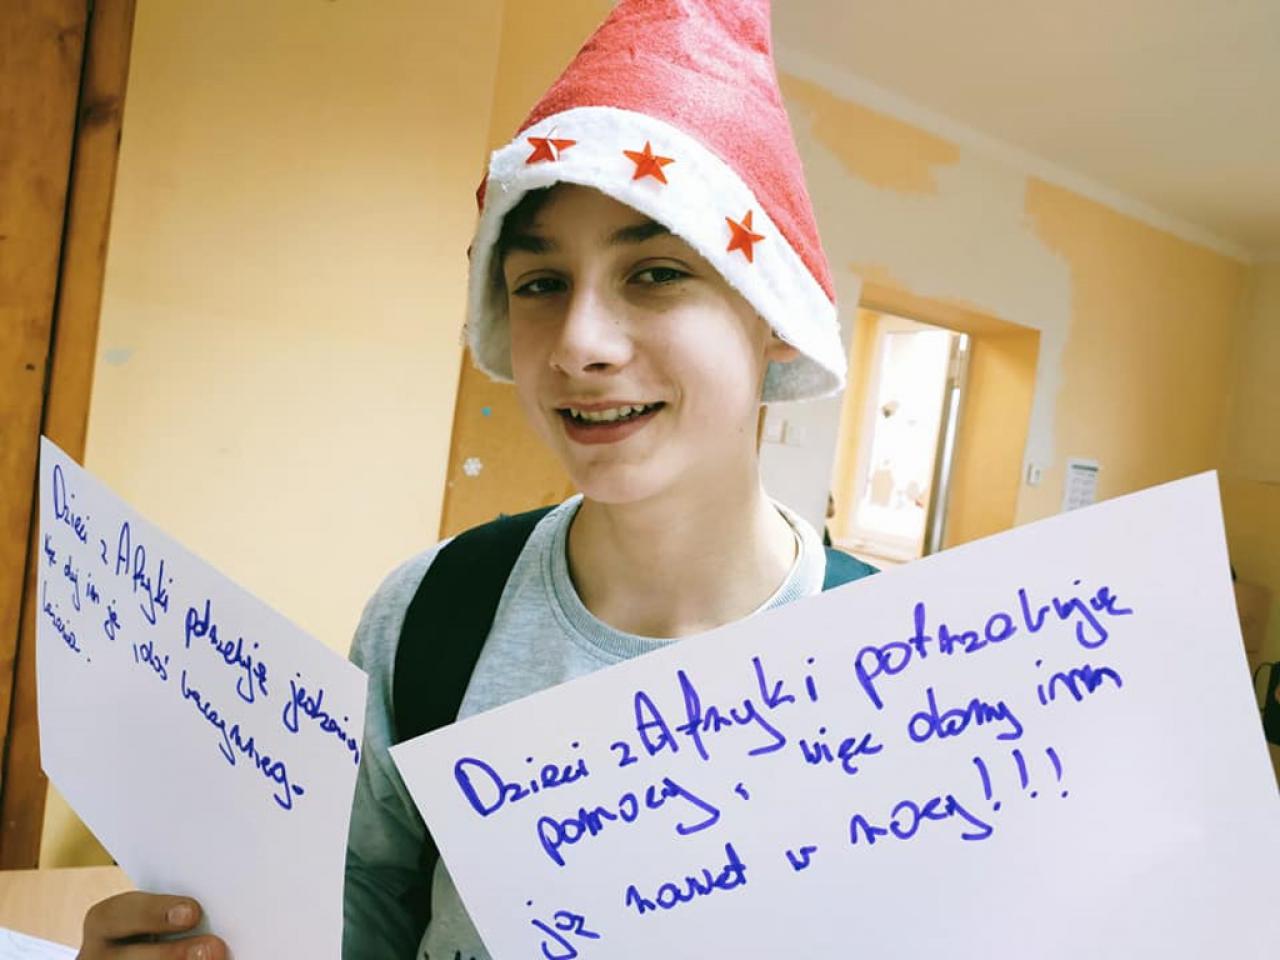 Dzieci z Afryki potrzebuje jedzenia,
więc daj im ję
Dzieci z Afryki potrzebuję
pomocy, więc damy im
ją nawet w nocy!!!